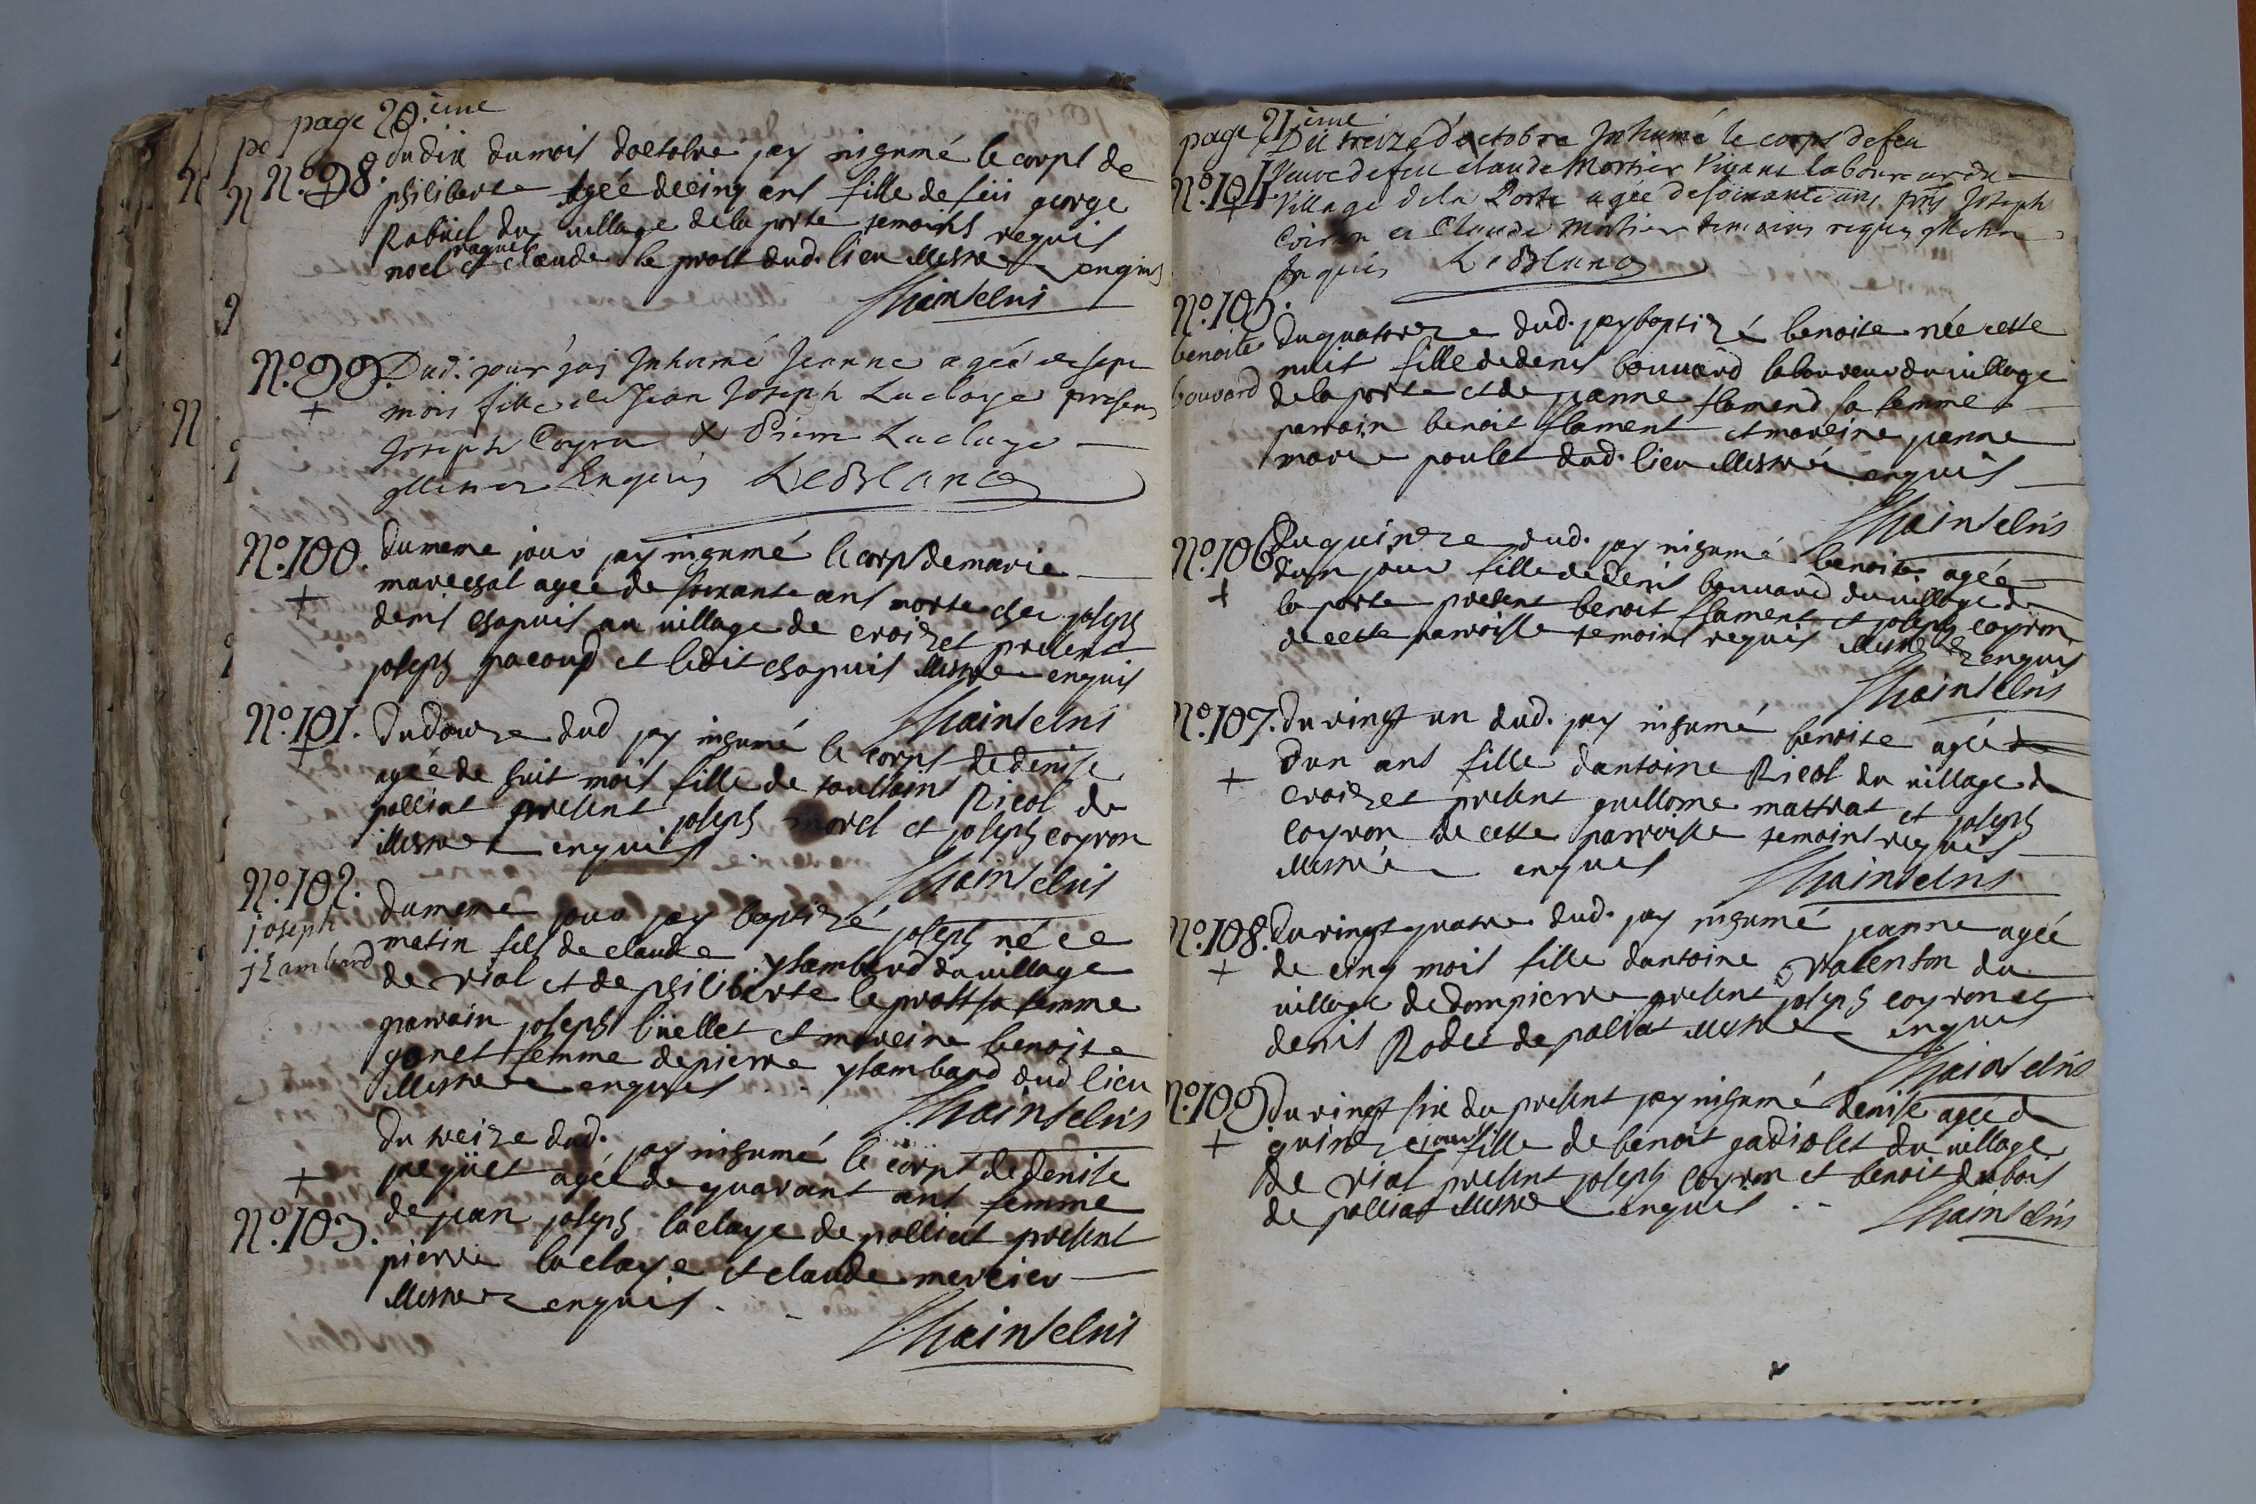 page 20.ieme
N.º98. du dix du mois doctobre jay inhumé le corps de
philiberte agée de cinq ans fille de feu george
Rabuel du village de la porte temoins requis
noel raquet et claude le prost dud. lieu illitteré enquis
Chainselni
N.º99. Dud. jour jay Inhumé Jeanne agée de sept
+
mois fille de Jean Joseph Laclaye presens
Joseph Coyron & Pierre Laclaye
illiteres Enquis LeBlanc
N.º100. du meme jour jay inhumé le corps de marie
+
mareschal agée de soixante ans morte chez joseph
denis chapuis au village de croizet present
joseph pacoud et ledit chapuis illitteré enquis
Chainselni
N.º101. du douze dud jay inhumé le corps de denise
+
agée de huit mois fille de toussaint Ricol de
polliat present joseph morel et joseph coyron
illitteré enquis
Chainselni
N.º102. du meme jour jay baptizé joseph né ce
joseph
matin fils de claude ysambard du village
jsambard
de vial et de philiberte le prost sa femme
parrain joseph buellet et mareine benoite
gonet femme de pierre ysambard dud lieu
illitteré enquis
Chainselni
du treize dud. jay inhumé le corps de denise
pegüet agée de quarant ans femme
+
N.º103. de jean joseph laclaye de polliat present
pierre laclaye et claude mercier
illitteré enquis
Chainselni
page 21.ieme
N.º104. Du treize d'octobre Inhumé le corps de feu
+
Veuve de feu claude Mortier Vivant laboureur du
Village de la Porte agée de soixante ans pnts Joseph
Coiron et Claude Mortier temoins requis illiteres
Enquis LeBlanc
N.º105.
benoite du quatorze dud. jay baptizé benoite née cette
nuit fille de denis bouvard laboureur du village
bouvard de la porte et de jeanne flamend sa femme
parrain benoit flament et mareine jeanne
marie poulet dud. lieu illitteré enquis
Chainselni
N.º106. du quinze dud. jay inhumé benoite agée
+
d'un jour fille de denis bouvard du village de
la porte present benoit flament et joseph coyron
de cette parroisse temoins requis illitteré enquis
Chainselni
N.º107. du vingt un dud. jay inhumé benoite agée
d'un ans fille dantoine Ricol du village de
+
croizet present guillome mattrat et joseph
coyron de cette parroisse temoins requis
illitteré enquis
Chainselni
N.º108. du vingt quatre dud. jay inhumé jeanne agée
+
de cinq mois fille dantoine valenton du
village de dompierre present joseph coyron et
denis Rodet de polliat illitteré enquis
Chainselni
N.º109. du vingt six du present jay inhumé denise agée de
+
quinze jour fille de benoit gadiolet du village
de vial present joseph coyron et benoit dubois
de polliat illitteré enquis
Chainselni